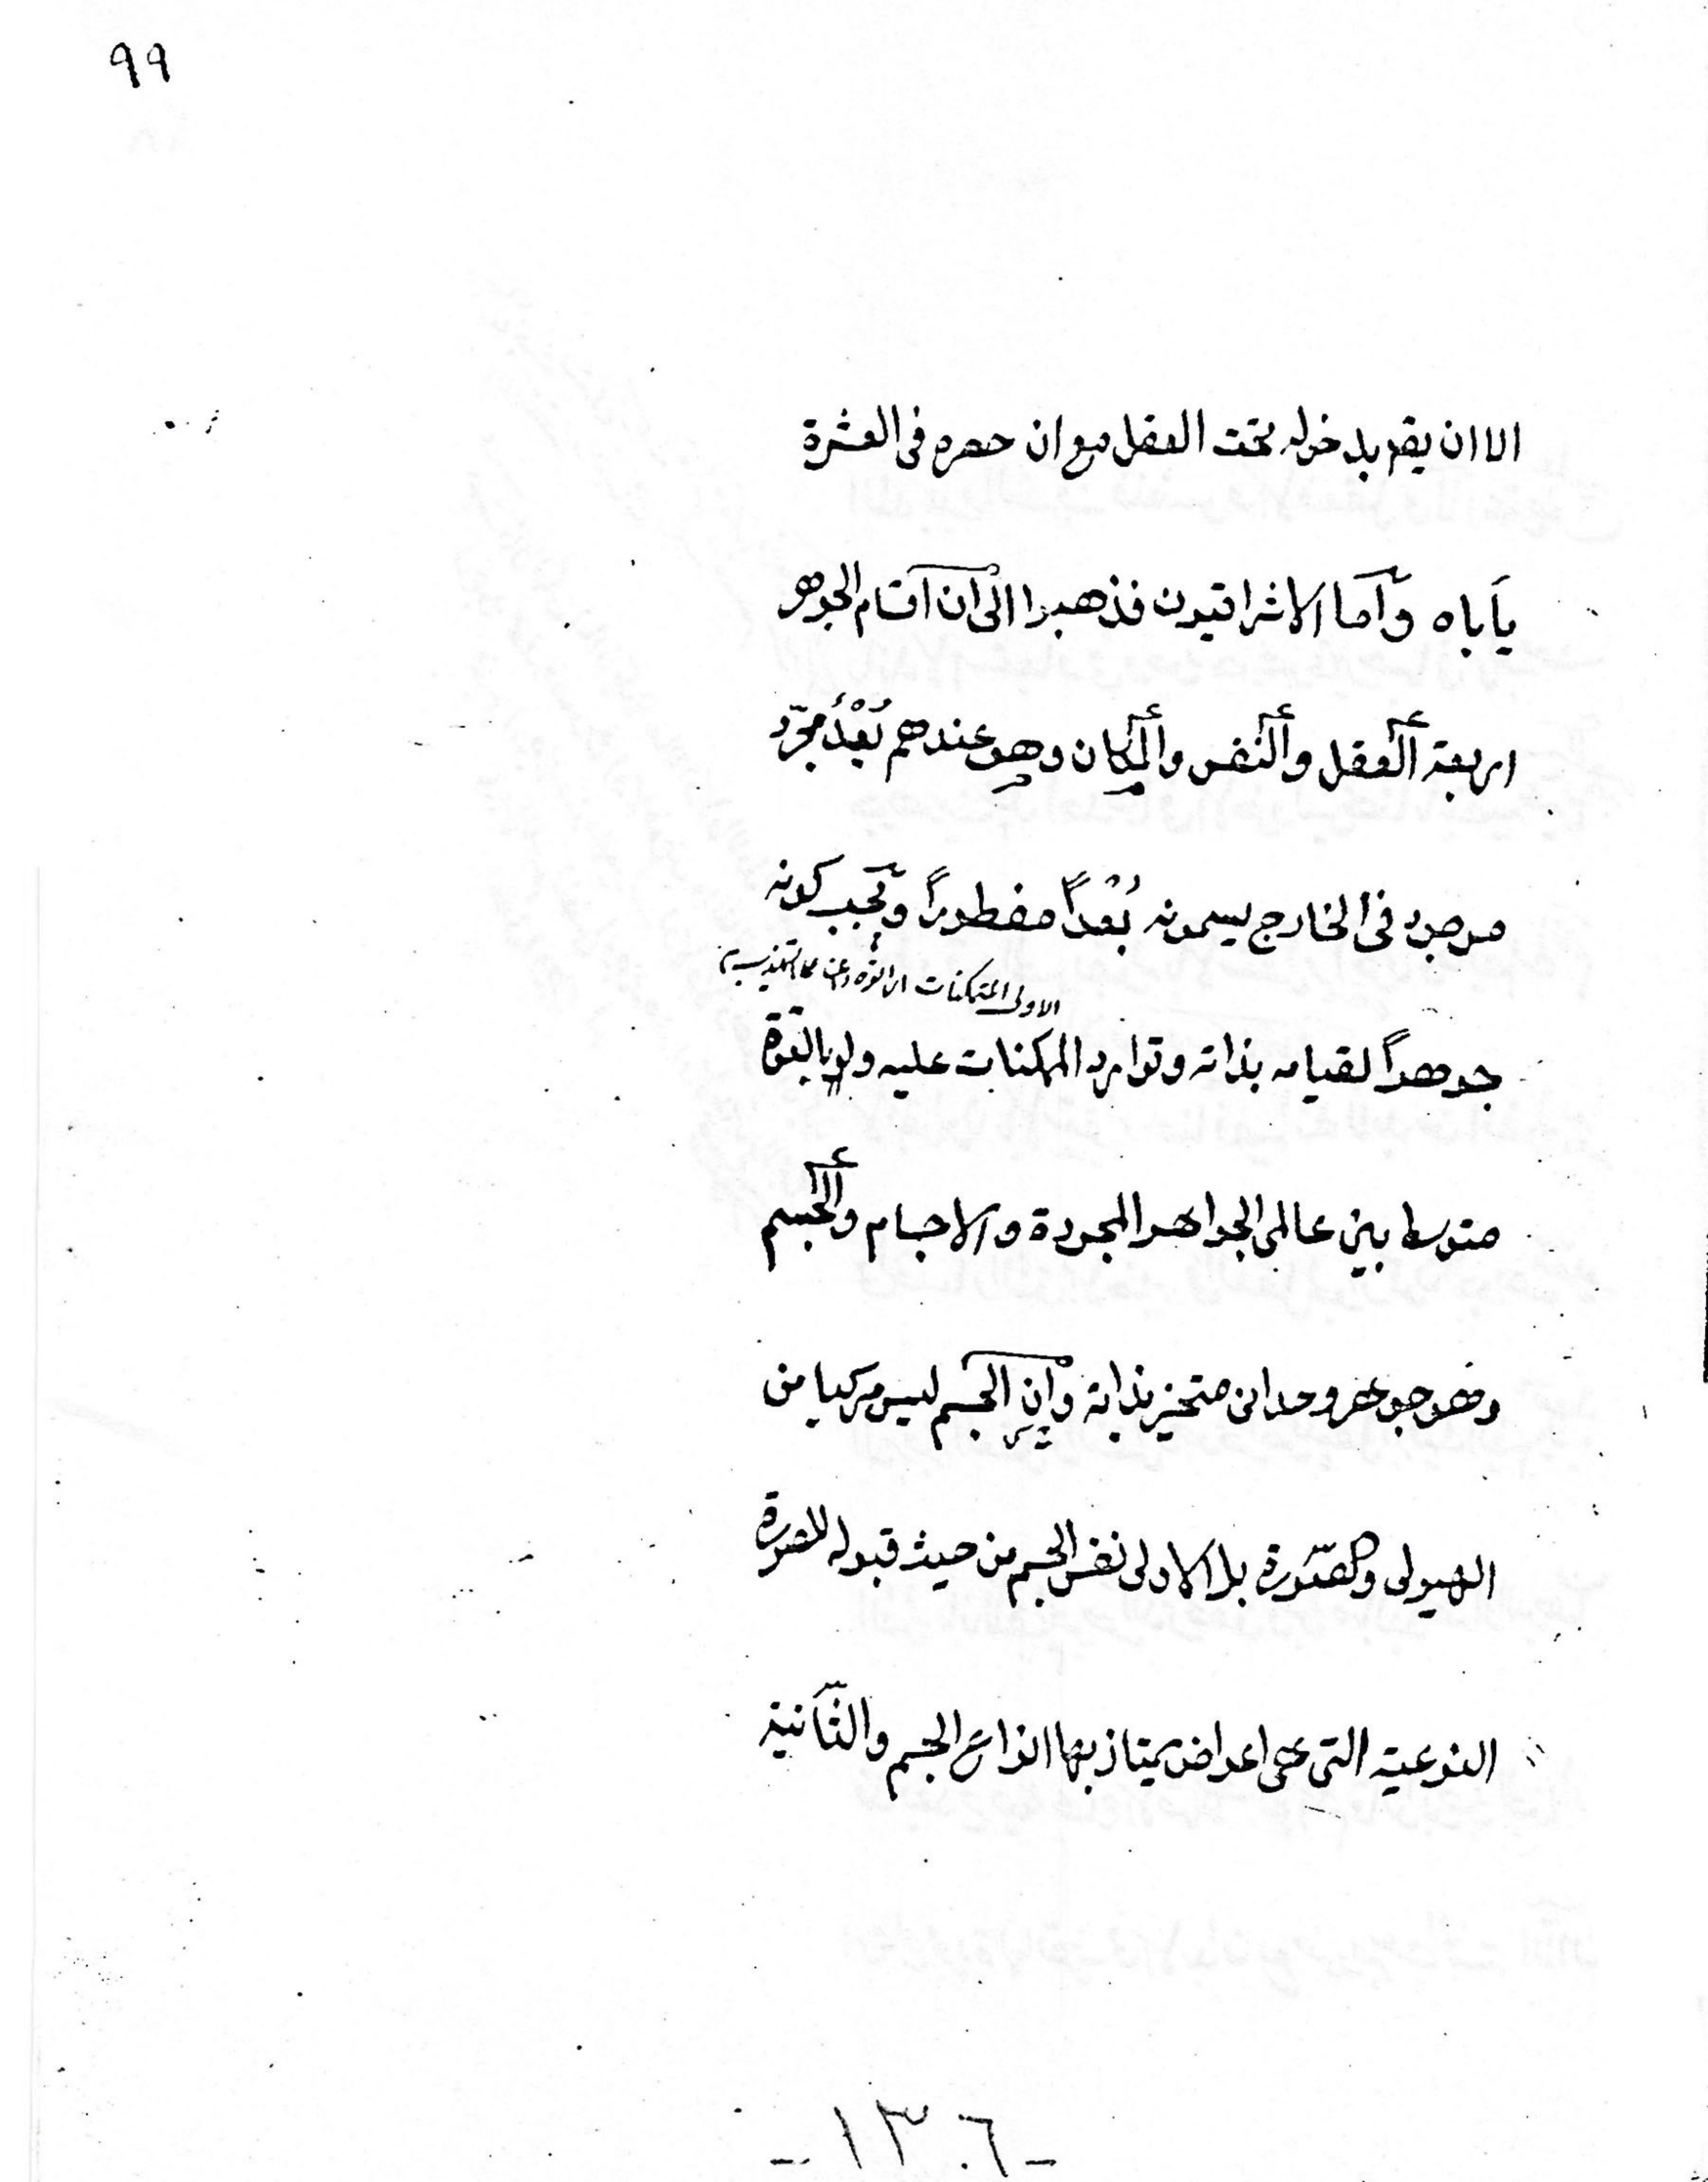 ٩٩
الا ان يقم بدخوله تحت العقل مع ان حصره فى العشرة
يأباه وآما الاشراقيون فذهبوا الى ان اقسام الجوهر
اربعة العقل والنفس والمكان وهو عندهم بُعْدٌ مجرّد
موجود فى الخارج يسمونه بُعْداً مفطوراً ويجب كونه
الاولى المتمكنات
جوهراً لقيامه بذاته وتوارد الممكنات عليه ولو بالقوة
متوسطا بين عالمى الجواهر المجردة والاجسام والجسم
وهو جوهر وحدانى متحيز بذاته وان الجسم ليس مركبا من
الهيولى والصّورة بل الاولى نفس الجسم من حيث قبوله للصورة
النوعية التى هى اعراض يمتاز بها انواع الجسم والثّانية
- ١٣٠٦ -